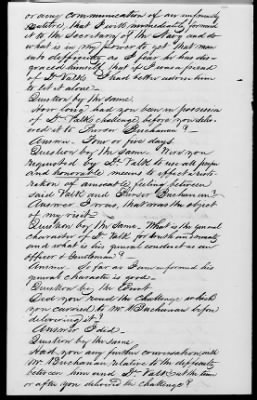 or any communication of an unfriendly
, that I will immediately forward
it to the Secretary of the Navy and do
what is in my power to get that man
into difficulty as I fear he has dis-
graced himself, that if I was a friend
of Dr Valk I had better advise him
to let it alone.
Question by the same.
How long had you been in possession
of Dr Valk's challenge before you deliv-
ered it to Purser Buchanan?
Answer. Four or five days.
Question by the Same. Were you
requested by Dr. Valk to use all proper
and honorable means to effect a resto-
ration of amicable feeling between
said Valk and Purser Buchanan?
Answer I was, that was the object
of my visit.
Question by the Same. What is the general
character of Dr Valk for truth and veracity
and what is his general conduct as an
officer & Gentleman?
Answer. So far as I am informed his
general character is good.
Question by the Court.
Did you read the challenge which
you carried to Mr Buchanan before
delivering it?
Answer I did.
Question by the same
Had you any further conversation with
Mr Buchanan relative to the difficulty
between him and Dr Valk at the time
or after you delivered the challenge?